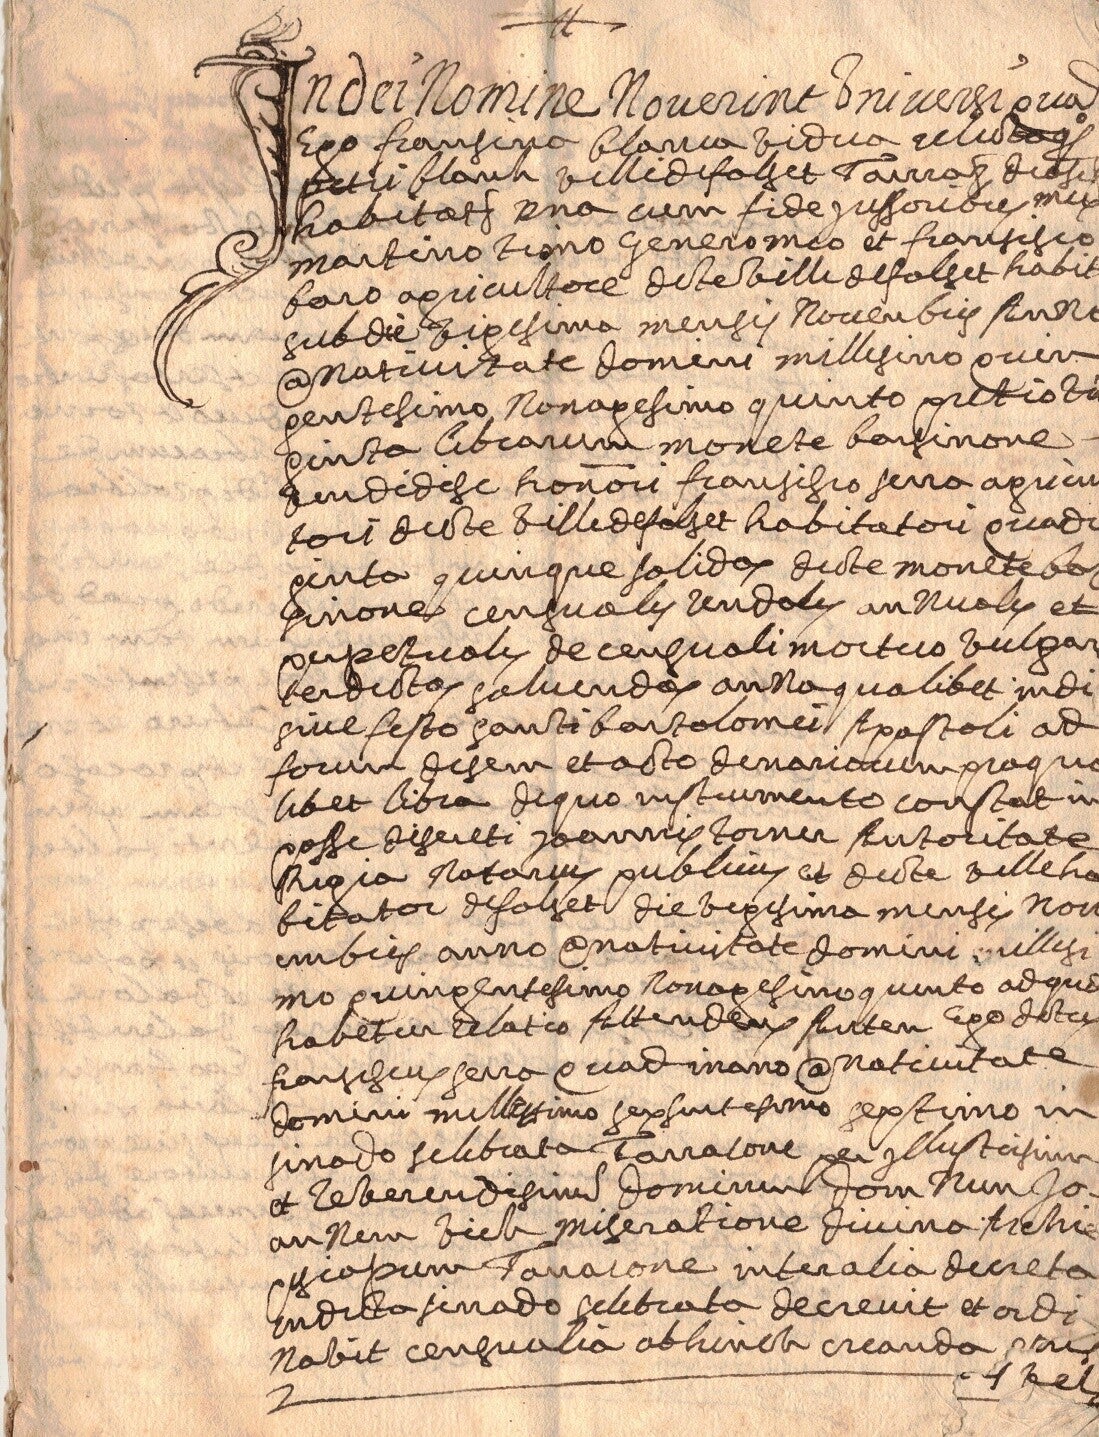 In dei Nomine Noverint Universi quod
Ego fransina blanca vidua relicta qo
petri blanch ville de falset Tarraco diosi
habitats una cum fide jussoribus meis
martino timo Genero meo et fransisco
baro agricultore dicte ville de falset habit
sub die vigesima mensis Novenbris Anno
@ Nativitate domini millesimo quin
gentesimo Nonagesimo quinto pretio tri
ginta librarum monete barsinone
vendidise honori fransisco serra agricul
tori dicte ville de falset habitatori quadr
ginta quinque solidos dicte monete bar
sinone censuales rendales annuales et
perpetuales de censuali mortuo vulgari
ter dictos solvendos anno qualibet in di
sive festo santi bartolomei Apostoli ad
forum disem et octo denariorum pro qua
libet libra de quo instrumento constat in
posse discreti joannis torner Autoritate
Regia Notarius publicus et dicte ville ha
bitator de falset die vigesima mensis Nov
embris anno @ nativitate domini millesi
mo quingentesimo Nonagesimo quinto ad que
habetur relatio Attendens Auten Ego dictus
fransiscus serra quod in ano @ Nativitate
domini millessimo sexsintesimo septimo in
sinado selebrata Tarracone per jllustrisimu
et Reverendisimu dominum dom Nun Jo-
annem vich miseratione divina Archie
psicopum Tarracone inter alia decreta
in dicta sinado selebrata decrevit et ordi
Nabit censualia abhinch creanda
vel